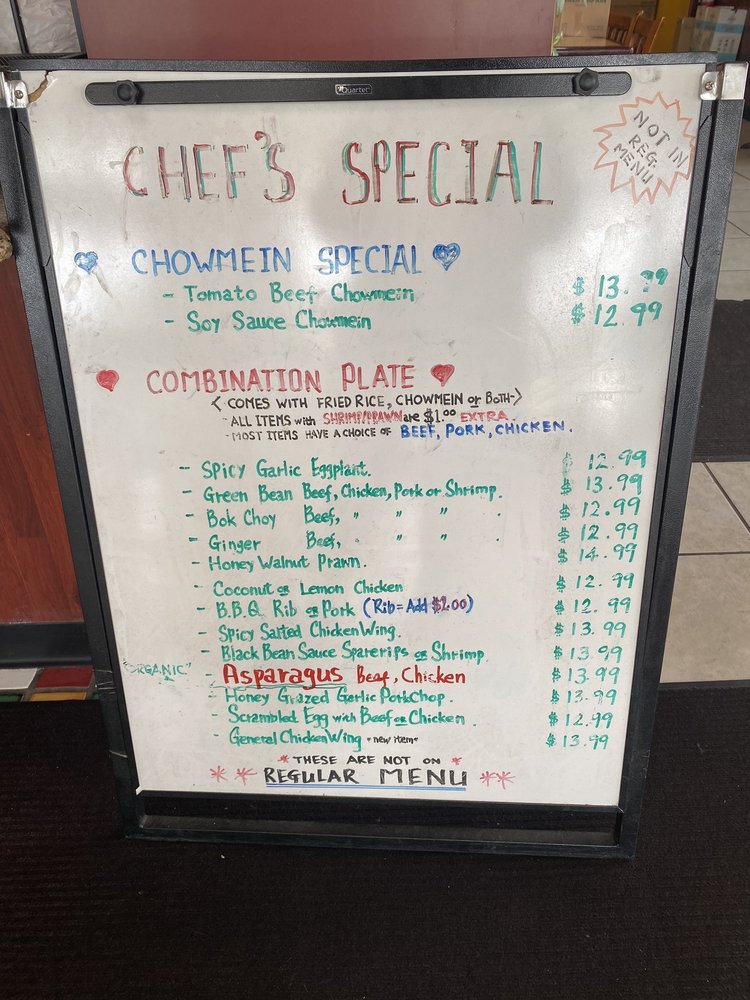 Quartet
NOT IN
REG.
MENU
CHEF'S SPECIAL
CHOWMEIN SPECIAL
- Tomato Beef Chowmein $ 13.99
- Soy Sauce Chowmein $ 12.99
COMBINATION PLATE
< COMES WITH FRIED RICE, CHOWMEIN or BOTH->
- ALL ITEMS with SHRIMP/PRAWN are $1.00 EXTRA.
- MOST ITEMS HAVE A CHOICE OF BEEF, PORK, CHICKEN.
- Spicy Garlic Eggplant. $ 12.99
- Green Bean Beef, Chicken, Pork or Shrimp. $ 13.99
- Bok Choy Beef, " " " . $ 12.99
- Ginger Beef, " " " . $ 12.99
- Honey Walnut Prawn. $ 14.99
- Coconut or Lemon Chicken $ 12.99
- B.B.Q Rib or Pork (Rib = Add $2.00) $ 12.99
- Spicy Salted Chicken Wing. $ 13.99
- Black Bean Sauce Sparerips or Shrimp. $ 13.99
"ORGANIC" - Asparagus Beef, Chicken $ 13.99
- Honey Grazed Garlic Pork Chop. $ 13.99
- Scrambled Egg with Beef or Chicken. $ 12.99
- General Chicken Wing *new item* $ 13.99
* THESE ARE NOT ON *
** REGULAR MENU **